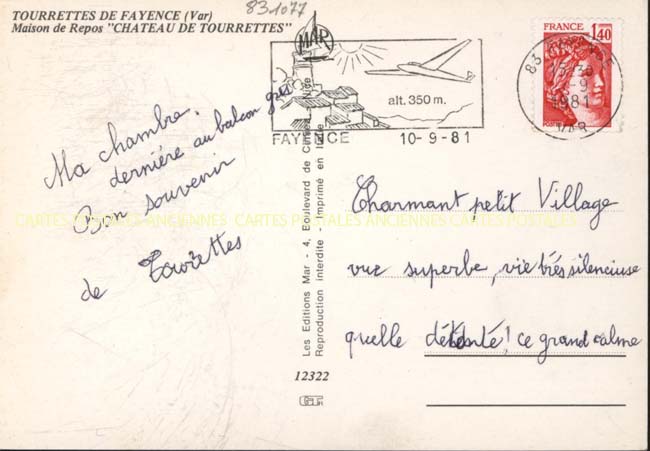 83.1077
TOURRETTES DE FAYENCE (Var)
Maison de Repos "CHATEAU DE TOURRETTES"
MAR
alt. 350 m.
FAYENCE 10-9-81
FRANCE
1,40
83 FAYENCE
1981
VAR
Ma chambre.
dernière au balcon gris
Bon souvenir
de Tourettes
CARTES POSTALES ANCIENNES CARTES POSTALES ANCIENNES CARTES POSTALES
Les Editions Mar - 4, Boulevard de Nice
Reproduction interdite - Imprimé en Italie
12322
Charmant petit Village
vue superbe, vie très silenciuse
quelle détente! ce grand calme